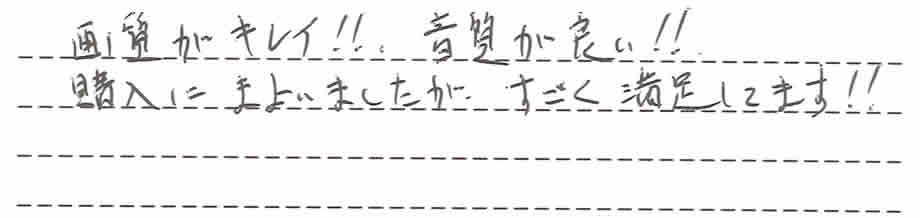 画質がキレイ!!、音質が良い!!
購入にまよいましたが、すごく満足してます!!